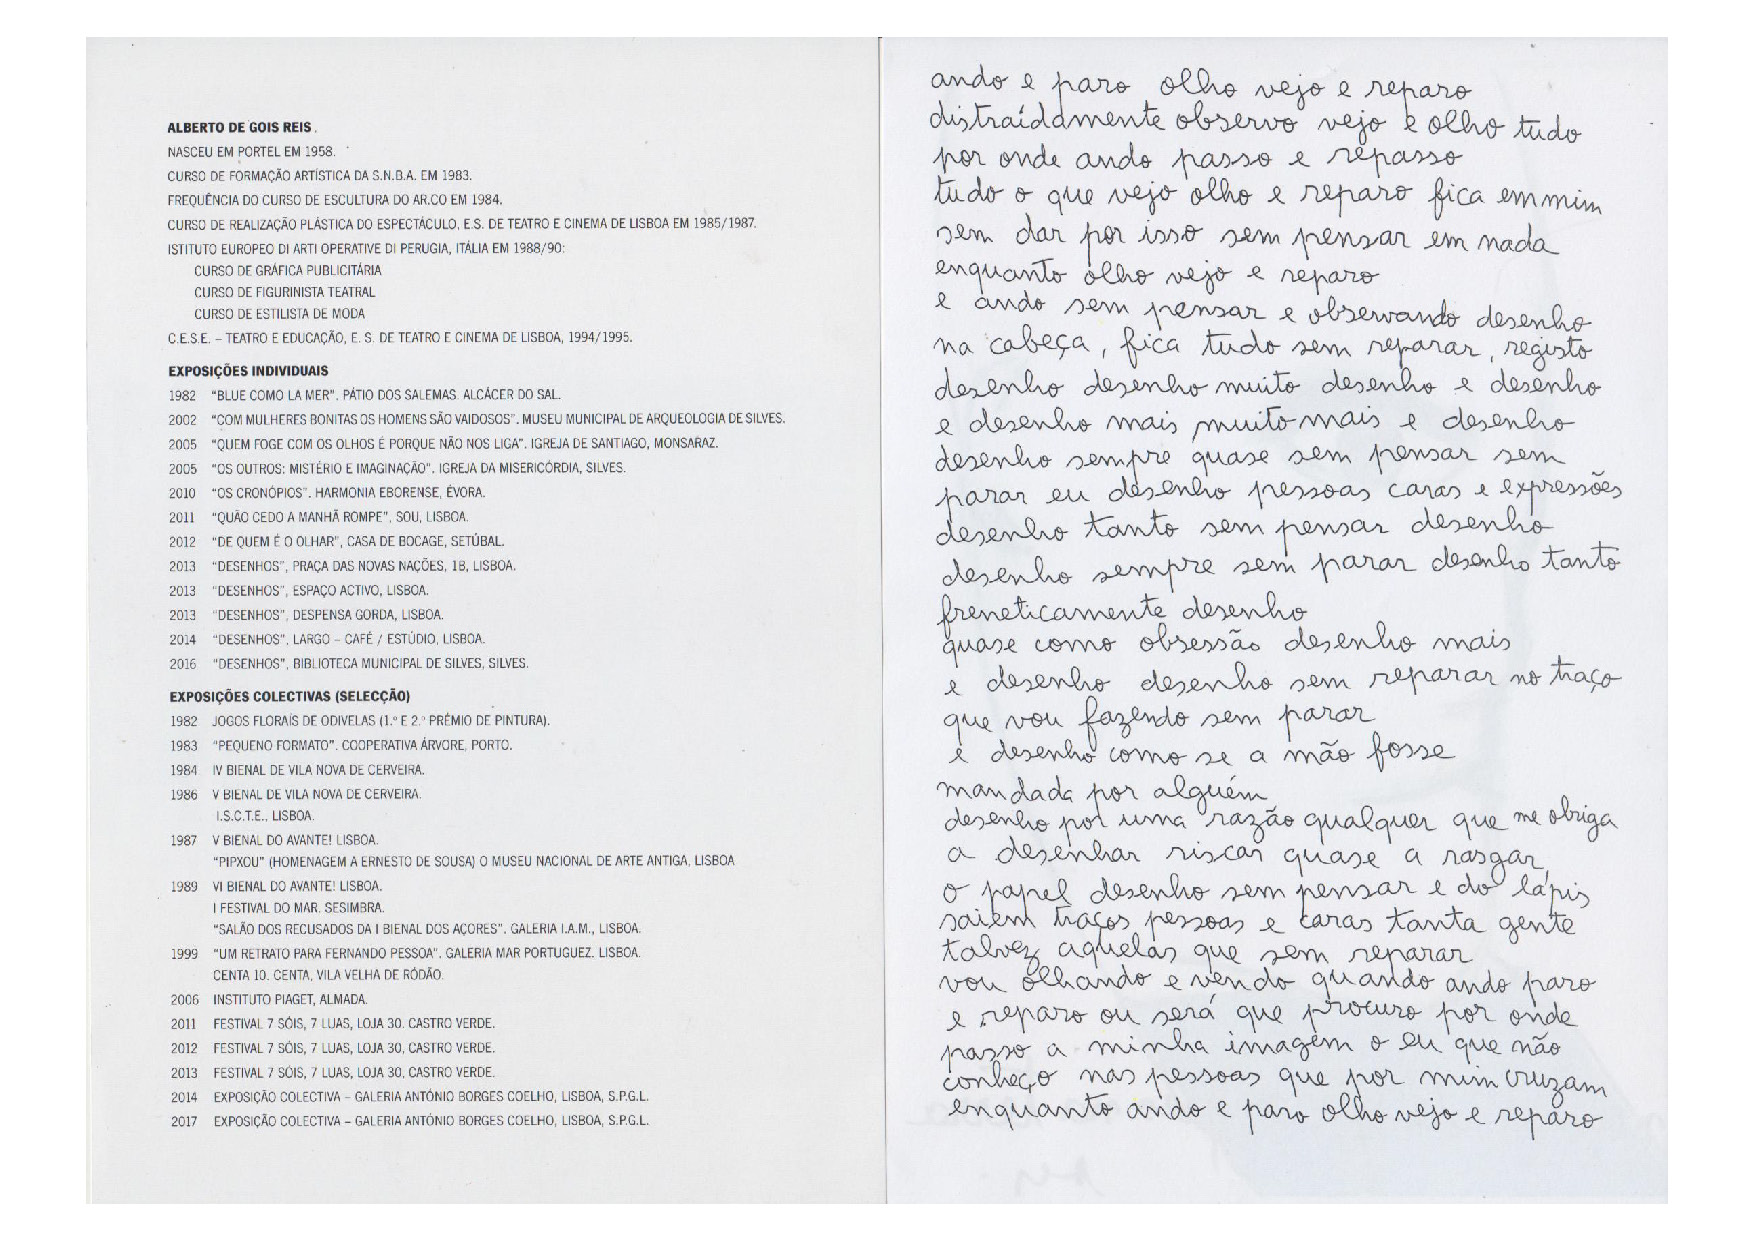 ALBERTO DE GOIS REIS.
NASCEU EM PORTEL EM 1958.
CURSO DE FORMAÇÃO ARTÍSTICA DA S.N.B.A. EM 1983.
FREQUÊNCIA DO CURSO DE ESCULTURA DO AR.CO EM 1984.
CURSO DE REALIZAÇÃO PLÁSTICA DO ESPECTÁCULO, E.S. DE TEATRO E CINEMA DE LISBOA EM 1985/1987.
ISTITUTO EUROPEO DI ARTI OPERATIVE DI PERUGIA, ITÁLIA EM 1988/90:
CURSO DE GRÁFICA PUBLICITÁRIA
CURSO DE FIGURINISTA TEATRAL
CURSO DE ESTILISTA DE MODA
C.E.S.E. – TEATRO E EDUCAÇÃO, E. S. DE TEATRO E CINEMA DE LISBOA, 1994/1995.
EXPOSIÇÕES INDIVIDUAIS
1982 "BLUE COMO LA MER". PÁTIO DOS SALEMAS. ALCÁCER DO SAL.
2002 "COM MULHERES BONITAS OS HOMENS SÃO VAIDOSOS". MUSEU MUNICIPAL DE ARQUEOLOGIA DE SILVES.
2005 "QUEM FOGE COM OS OLHOS É PORQUE NÃO NOS LIGA". IGREJA DE SANTIAGO, MONSARAZ.
2005 "OS OUTROS: MISTÉRIO E IMAGINAÇÃO". IGREJA DA MISERICÓRDIA, SILVES.
2010 "OS CRONÓPIOS". HARMONIA EBORENSE, ÉVORA.
2011 "QUÃO CEDO A MANHÃ ROMPE", SOU, LISBOA.
2012 "DE QUEM É O OLHAR", CASA DE BOCAGE, SETÚBAL.
2013 "DESENHOS", PRAÇA DAS NOVAS NAÇÕES, 1B, LISBOA.
2013 "DESENHOS", ESPAÇO ACTIVO, LISBOA.
2013 "DESENHOS", DESPENSA GORDA, LISBOA.
2014 "DESENHOS", LARGO – CAFÉ / ESTÚDIO, LISBOA.
2016 "DESENHOS", BIBLIOTECA MUNICIPAL DE SILVES, SILVES.
EXPOSIÇÕES COLECTIVAS (SELECÇÃO)
1982 JOGOS FLORAÍS DE ODIVELAS (1.º E 2.º PRÉMIO DE PINTURA).
1983 "PEQUENO FORMATO". COOPERATIVA ÁRVORE, PORTO.
1984 IV BIENAL DE VILA NOVA DE CERVEIRA.
1986 V BIENAL DE VILA NOVA DE CERVEIRA.
I.S.C.T.E., LISBOA.
1987 V BIENAL DO AVANTE! LISBOA.
"PIPXOU" (HOMENAGEM A ERNESTO DE SOUSA) O MUSEU NACIONAL DE ARTE ANTIGA, LISBOA
1989 VI BIENAL DO AVANTE! LISBOA.
I FESTIVAL DO MAR. SESIMBRA.
"SALÃO DOS RECUSADOS DA I BIENAL DOS AÇORES". GALERIA I.A.M., LISBOA.
1999 "UM RETRATO PARA FERNANDO PESSOA". GALERIA MAR PORTUGUEZ. LISBOA.
CENTA 10. CENTA, VILA VELHA DE RÓDÃO.
2006 INSTITUTO PIAGET, ALMADA.
2011 FESTIVAL 7 SÓIS, 7 LUAS, LOJA 30. CASTRO VERDE.
2012 FESTIVAL 7 SÓIS, 7 LUAS, LOJA 30, CASTRO VERDE.
2013 FESTIVAL 7 SÓIS, 7 LUAS, LOJA 30, CASTRO VERDE.
2014 EXPOSIÇÃO COLECTIVA – GALERIA ANTÓNIO BORGES COELHO, LISBOA, S.P.G.L.
2017 EXPOSIÇÃO COLECTIVA – GALERIA ANTÓNIO BORGES COELHO, LISBOA, S.P.G.L.
ando e paro olho vejo e reparo
distraídamente observo vejo e olho tudo
por onde ando passo e repasso
tudo o que vejo olho e reparo fica em mim
sem dar por isso sem pensar em nada
enquanto olho vejo e reparo
e ando sem pensar e observando desenho
na cabeça, fica tudo sem reparar, registo
desenho desenho muito desenho e desenho
e desenho mais muito mais e desenho
desenho sempre quase sem pensar sem
parar eu desenho pessoas caras e expressões
desenho tanto sem pensar desenho
desenho sempre sem parar desenho tanto
freneticamente desenho
quase como obsessão desenho mais
e desenho desenho sem reparar no traço
que vou fazendo sem parar
e desenho como se a mão fosse
mandada por alguém
desenho por uma razão qualquer que me obriga
a desenhar riscar quase a rasgar
o papel desenho sem pensar e do lápis
saiem traços pessoas e caras tanta gente
talvez aquelas que sem reparar
vou olhando e vendo quando ando paro
e reparo ou será que procuro por onde
passo a minha imagem o eu que não
conheço nas pessoas que por mim cruzam
enquanto ando e paro olho vejo e reparo